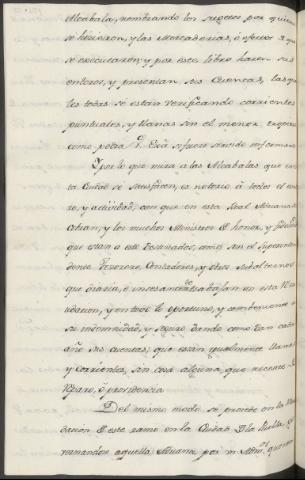 Alcabala, nombrando los sugetos por quien
se hicieron, y las Mercaderias, ò efectos ȝ que
se executaron, y por este libro hacen sus
enteros, y presentan sus Cuentas, las qua
les todas se estàn verificando corrientes
puntuales, y llanas sin el menor
como podrà V. Exâ si fuere servido informarse
Y por lo que mira à las Alcabalas que en es
ta Ciudad se satisfacen, es notorio à todos el
y actividad, con que en esta Real Aduana se
cobran, y los muchos Ministros de honor, y
que estàn à este destinados, como son el Superinten
dente Thesorero, Contadores, y otros subalternos
que diaria, è incesantemte trabajan en esta
daucion, y en todo lo oportuno, y conducente à
su indemnidad, y seguro dando como dan cada
año sus cuentas, que estàn igualmente llanas
y corrientes, sin cosa alguna, que necesite de
Reparo, ò providencia
Del mismo modo, se procede en la
dacion de este ramo en la Ciudad de la Puebla, go
vernandose aquella Aduana por un Admor